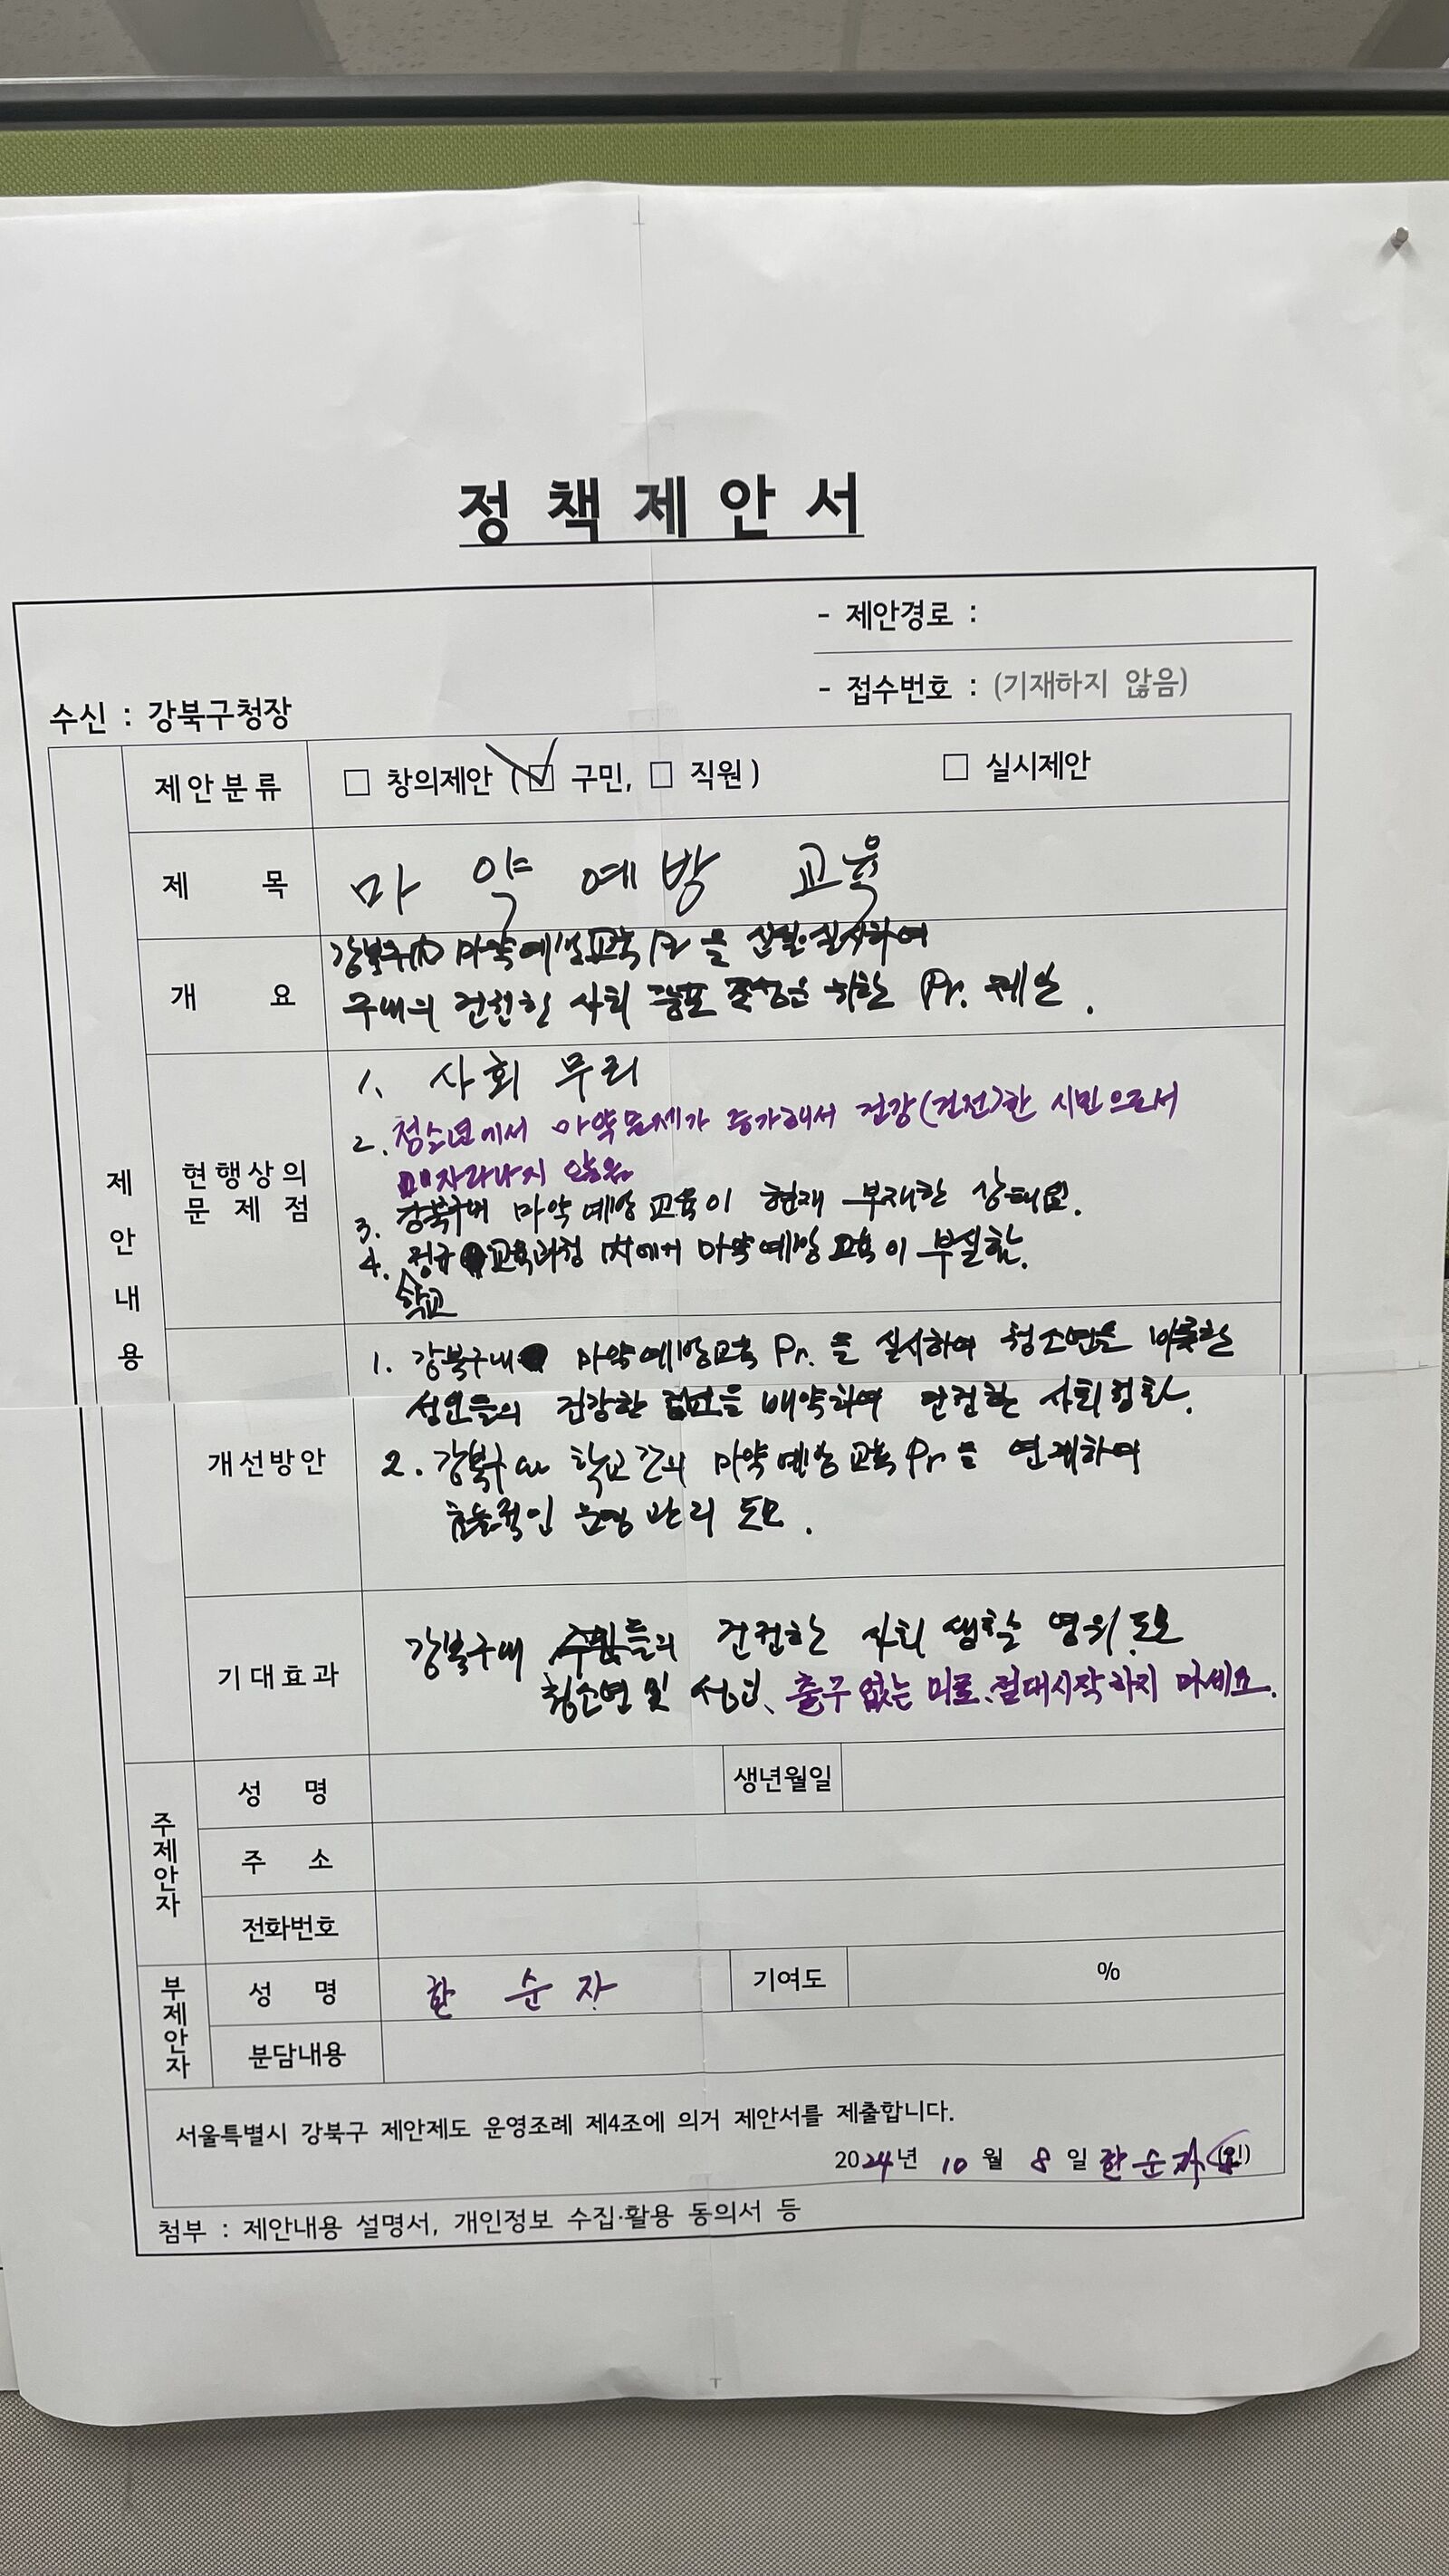 정 책 제 안 서
- 제안경로 :
- 접수번호 : (기재하지 않음)
수신 : 강북구청장
제안내용
제안분류
☐ 창의제안 (☑ 구민, ☐ 직원) ☐ 실시제안
제 목
마 약 예 방 교육
개 요
강북구內 마약예방교육 Pr을 실시하여
구내의 건전한 사회 조성을 위한 Pr. 제안.
현행상의
문 제 점
1. 사회 무리
2. 청소년에서 마약문제가 증가해서 건강(건전)한 시민으로서
자라나지 않음
3. 강북구내 마약예방 교육이 현재 부재한 상태임.
4. 정규 교육과정 內에서 마약예방 교육이 부실함.
학교
개선방안
1. 강북구내 마약예방교육 Pr. 을 실시하여 청소년을 비롯한
성인들의 건강한 을 배양하여 건전한 사회정화.
2. 강북구 內 학교간의 마약예방교육 Pr을 연계하여
효율적인 운영관리 도모.
기대효과
강북구내 들의 건전한 사회생활 영위 도모
청소년 및 성인、출구 없는 미로、절대시작하지 마세요.
주제안자
성 명
생년월일
주 소
전화번호
부제안자
성 명
한 순 자
기여도
%
분담내용
서울특별시 강북구 제안제도 운영조례 제4조에 의거 제안서를 제출합니다.
2024년 10 월 8 일 한 순 자 (인)
첨부 : 제안내용 설명서, 개인정보 수집·활용 동의서 등